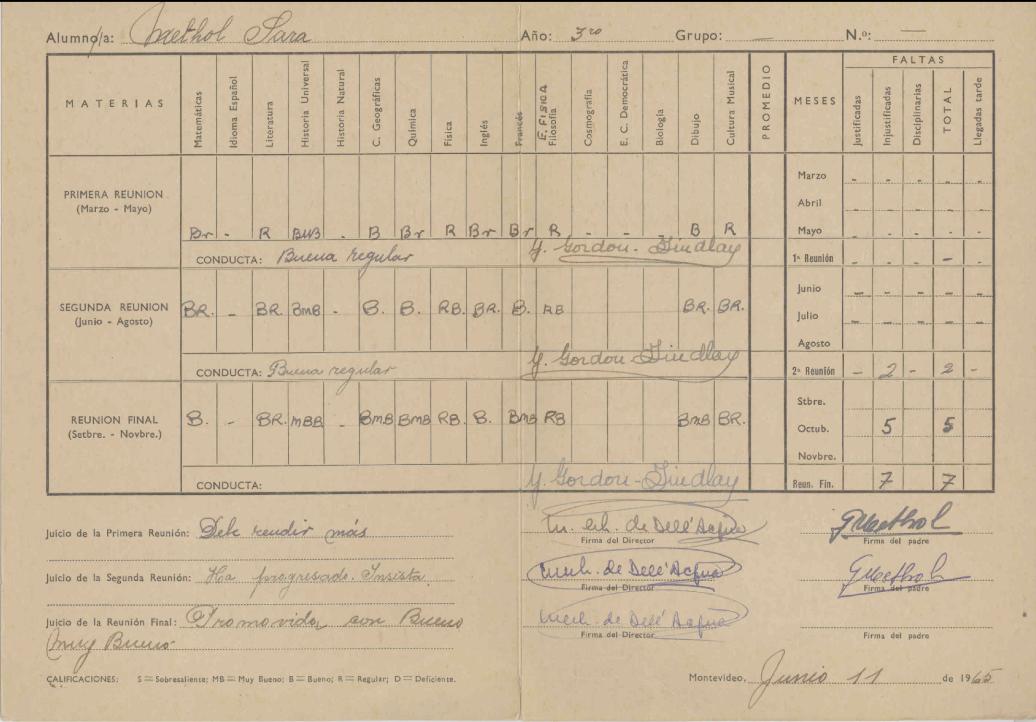 Alumno/a: Methol Sara Año: 3ro Grupo: — N.o: —
MATERIAS Matemáticas Idioma Español Literatura Historia Universal Historia Natural C. Geográficas Química Física Inglés Francés E. FISICA Filosofía Cosmografía E. C. Democrática Biología Dibujo Cultura Musical PROMEDIO MESES FALTAS Justificadas Injustificadas Disciplinarias TOTAL Llegadas tarde
Marzo - - - - -
PRIMERA REUNION
(Marzo - Mayo)
Abril - - - - -
Br - R BMB - B Br R Br Br R - - B R Mayo - - - - -
CONDUCTA: Buena regular Y. Gordon-Findlay 1ª Reunión - - - - -
Junio - - - - -
SEGUNDA REUNION
(Junio - Agosto)
BR. - BR. BmB - B. B. RB. BR. B. RB BR. BR. Julio - - - - -
Agosto
CONDUCTA: Buena regular Y. Gordon-Findlay 2ª Reunión - 2 - 2 -
Stbre.
REUNION FINAL
(Setbre. - Novbre.)
B. - BR. mBB - BmB BmB RB. B. BmB RB BmB BR. Octub. 5 5
Novbre.
CONDUCTA: Y. Gordon-Findlay Reun. Fin. 7 7
Juicio de la Primera Reunión: Debe rendir más de Dell'Acqua GMethol
Firma del Director Firma del padre
Juicio de la Segunda Reunión: Ha progresado. Insista de Dell'Acqua GMethol
Firma del Director Firma del padre
Juicio de la Reunión Final: Promovida con Bueno de Dell'Acqua
Muy Bueno
Firma del Director Firma del padre
CALIFICACIONES: S = Sobresaliente; MB = Muy Bueno; B = Bueno; R = Regular; D = Deficiente. Montevideo, Junio 11 de 1965